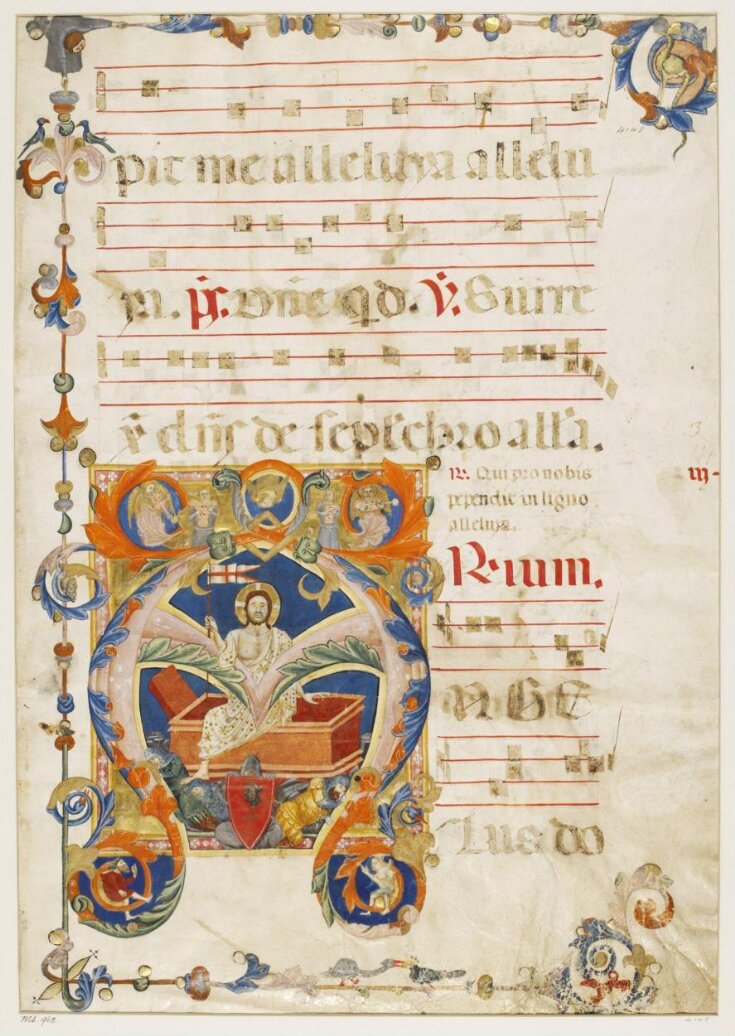 pit me alleluya allelu
ya. p̄s. Dñe qd. V̄. Surre
x̄ dñs de sepulchro all'a.
R. Qui pro nobis
pependit in ligno
alleluya.
iij·
R·ium.
NGE
Lus do